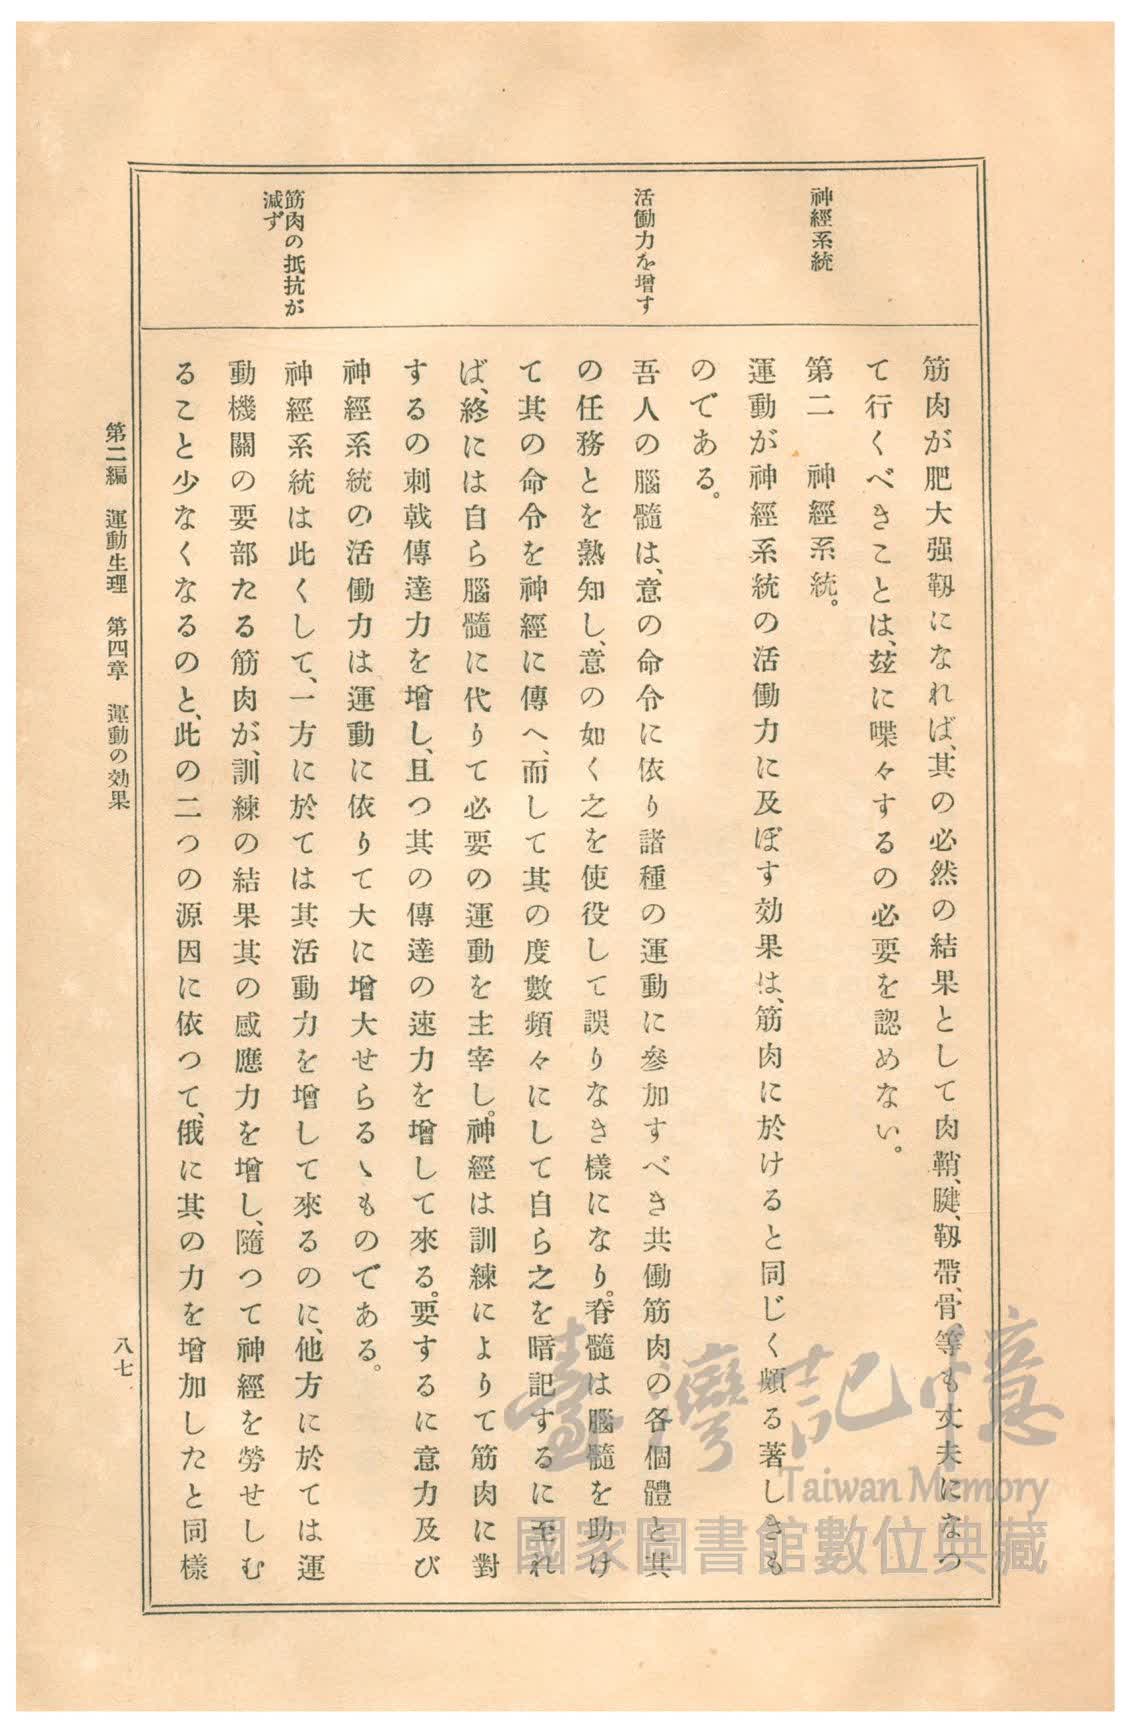 神經系統
活働力を增す
筋肉の抵抗が
減ず
筋肉が肥大强靱になれば、其の必然の結果として肉鞘、腱、靱帶、骨等も丈夫になつ
て行くべきことは、玆に喋々するの必要を認めない。
第二　神經系統。
運動が神經系統の活働力に及ぼす効果は、筋肉に於けると同じく頗る著しきも
のである。
吾人の腦髓は、意の命令に依り諸種の運動に參加すべき共働筋肉の各個體と其
の任務とを熟知し、意の如く之を使役して誤りなき樣になり。脊髓は腦髓を助け
て其の命令を神經に傳へ、而して其の度數頻々にして自ら之を暗記するに至れ
ば、終には自ら腦髓に代りて必要の運動を主宰し。神經は訓練によりて筋肉に對
するの刺戟傳達力を增し、且つ其の傳達の速力を增して來る。要するに意力及び
神經系統の活働力は運動に依りて大に增大せらるゝものである。
神經系統は此くして、一方に於ては其活動力を增して來るのに、他方に於ては運
動機關の要部たる筋肉が、訓練の結果其の感應力を增し、隨つて神經を勞せしむ
ること少なくなるのと、此の二つの源因に依つて、俄に其の力を增加したと同樣
第二編　運動生理　第四章　運動の効果
八七
臺灣記憶
Taiwan Memory
國家圖書館數位典藏